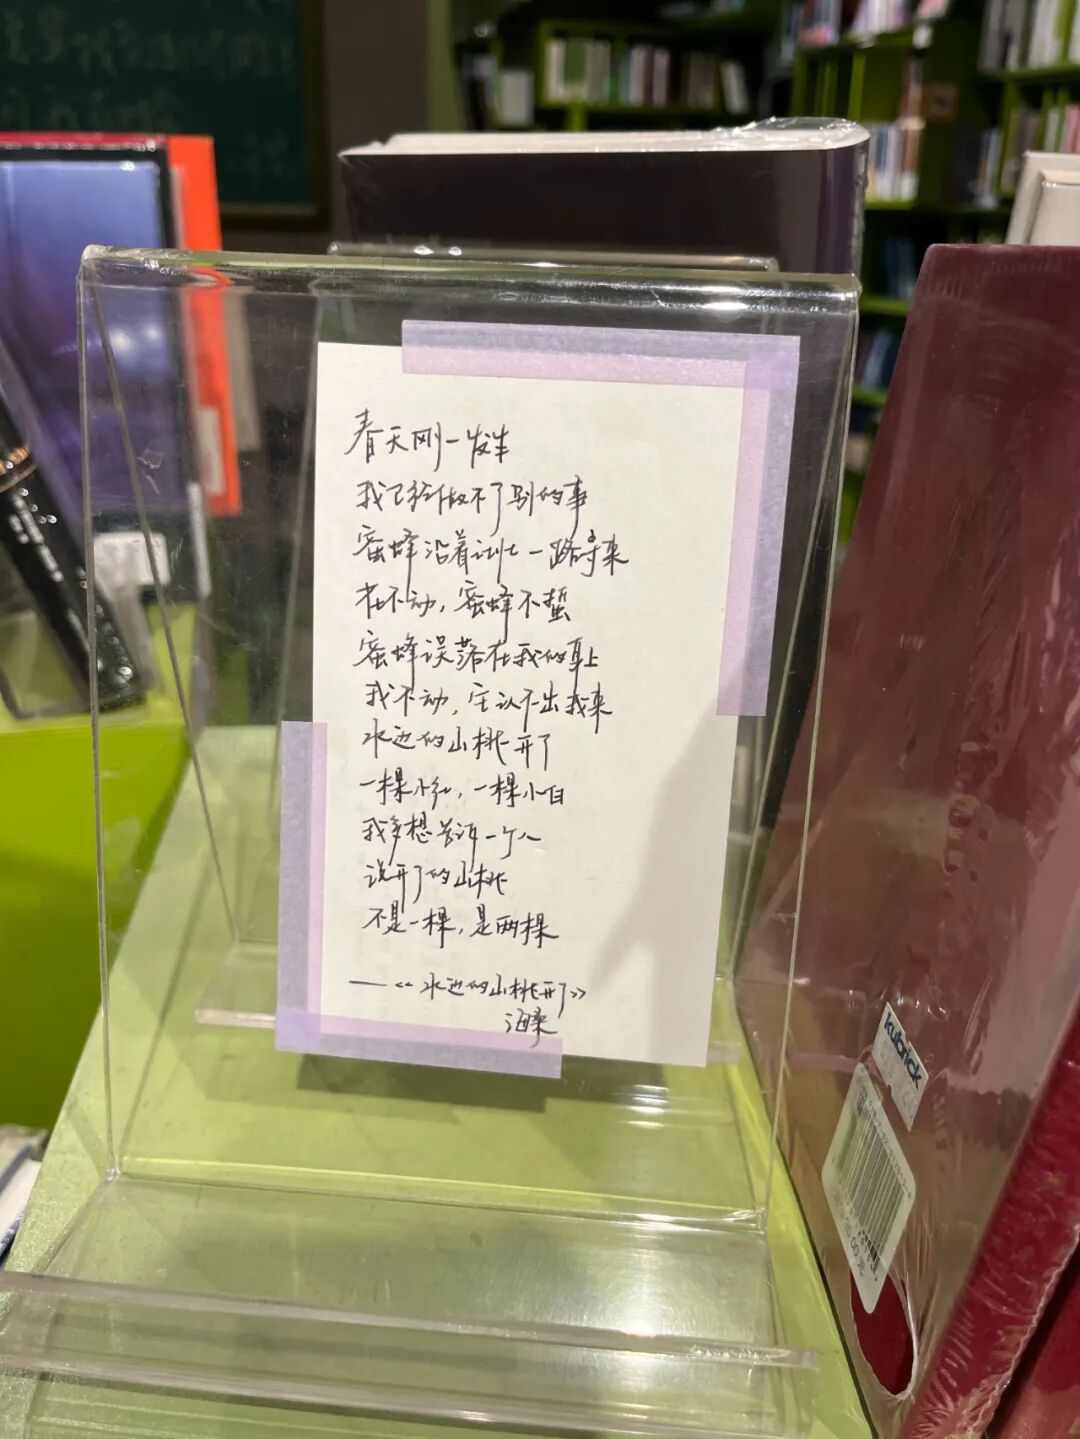 春天刚一发生
我已经做不了别的事
蜜蜂沿着 一路寻来
花不动，蜜蜂不蜇
蜜蜂误落在我的身上
我不动，它认不出我来
水边的山桃开了
一棵小红，一棵小白
我多想告诉一个人
说开了的山桃
不是一棵，是两棵
——<<水边的山桃开了>>
海桑
kubrick